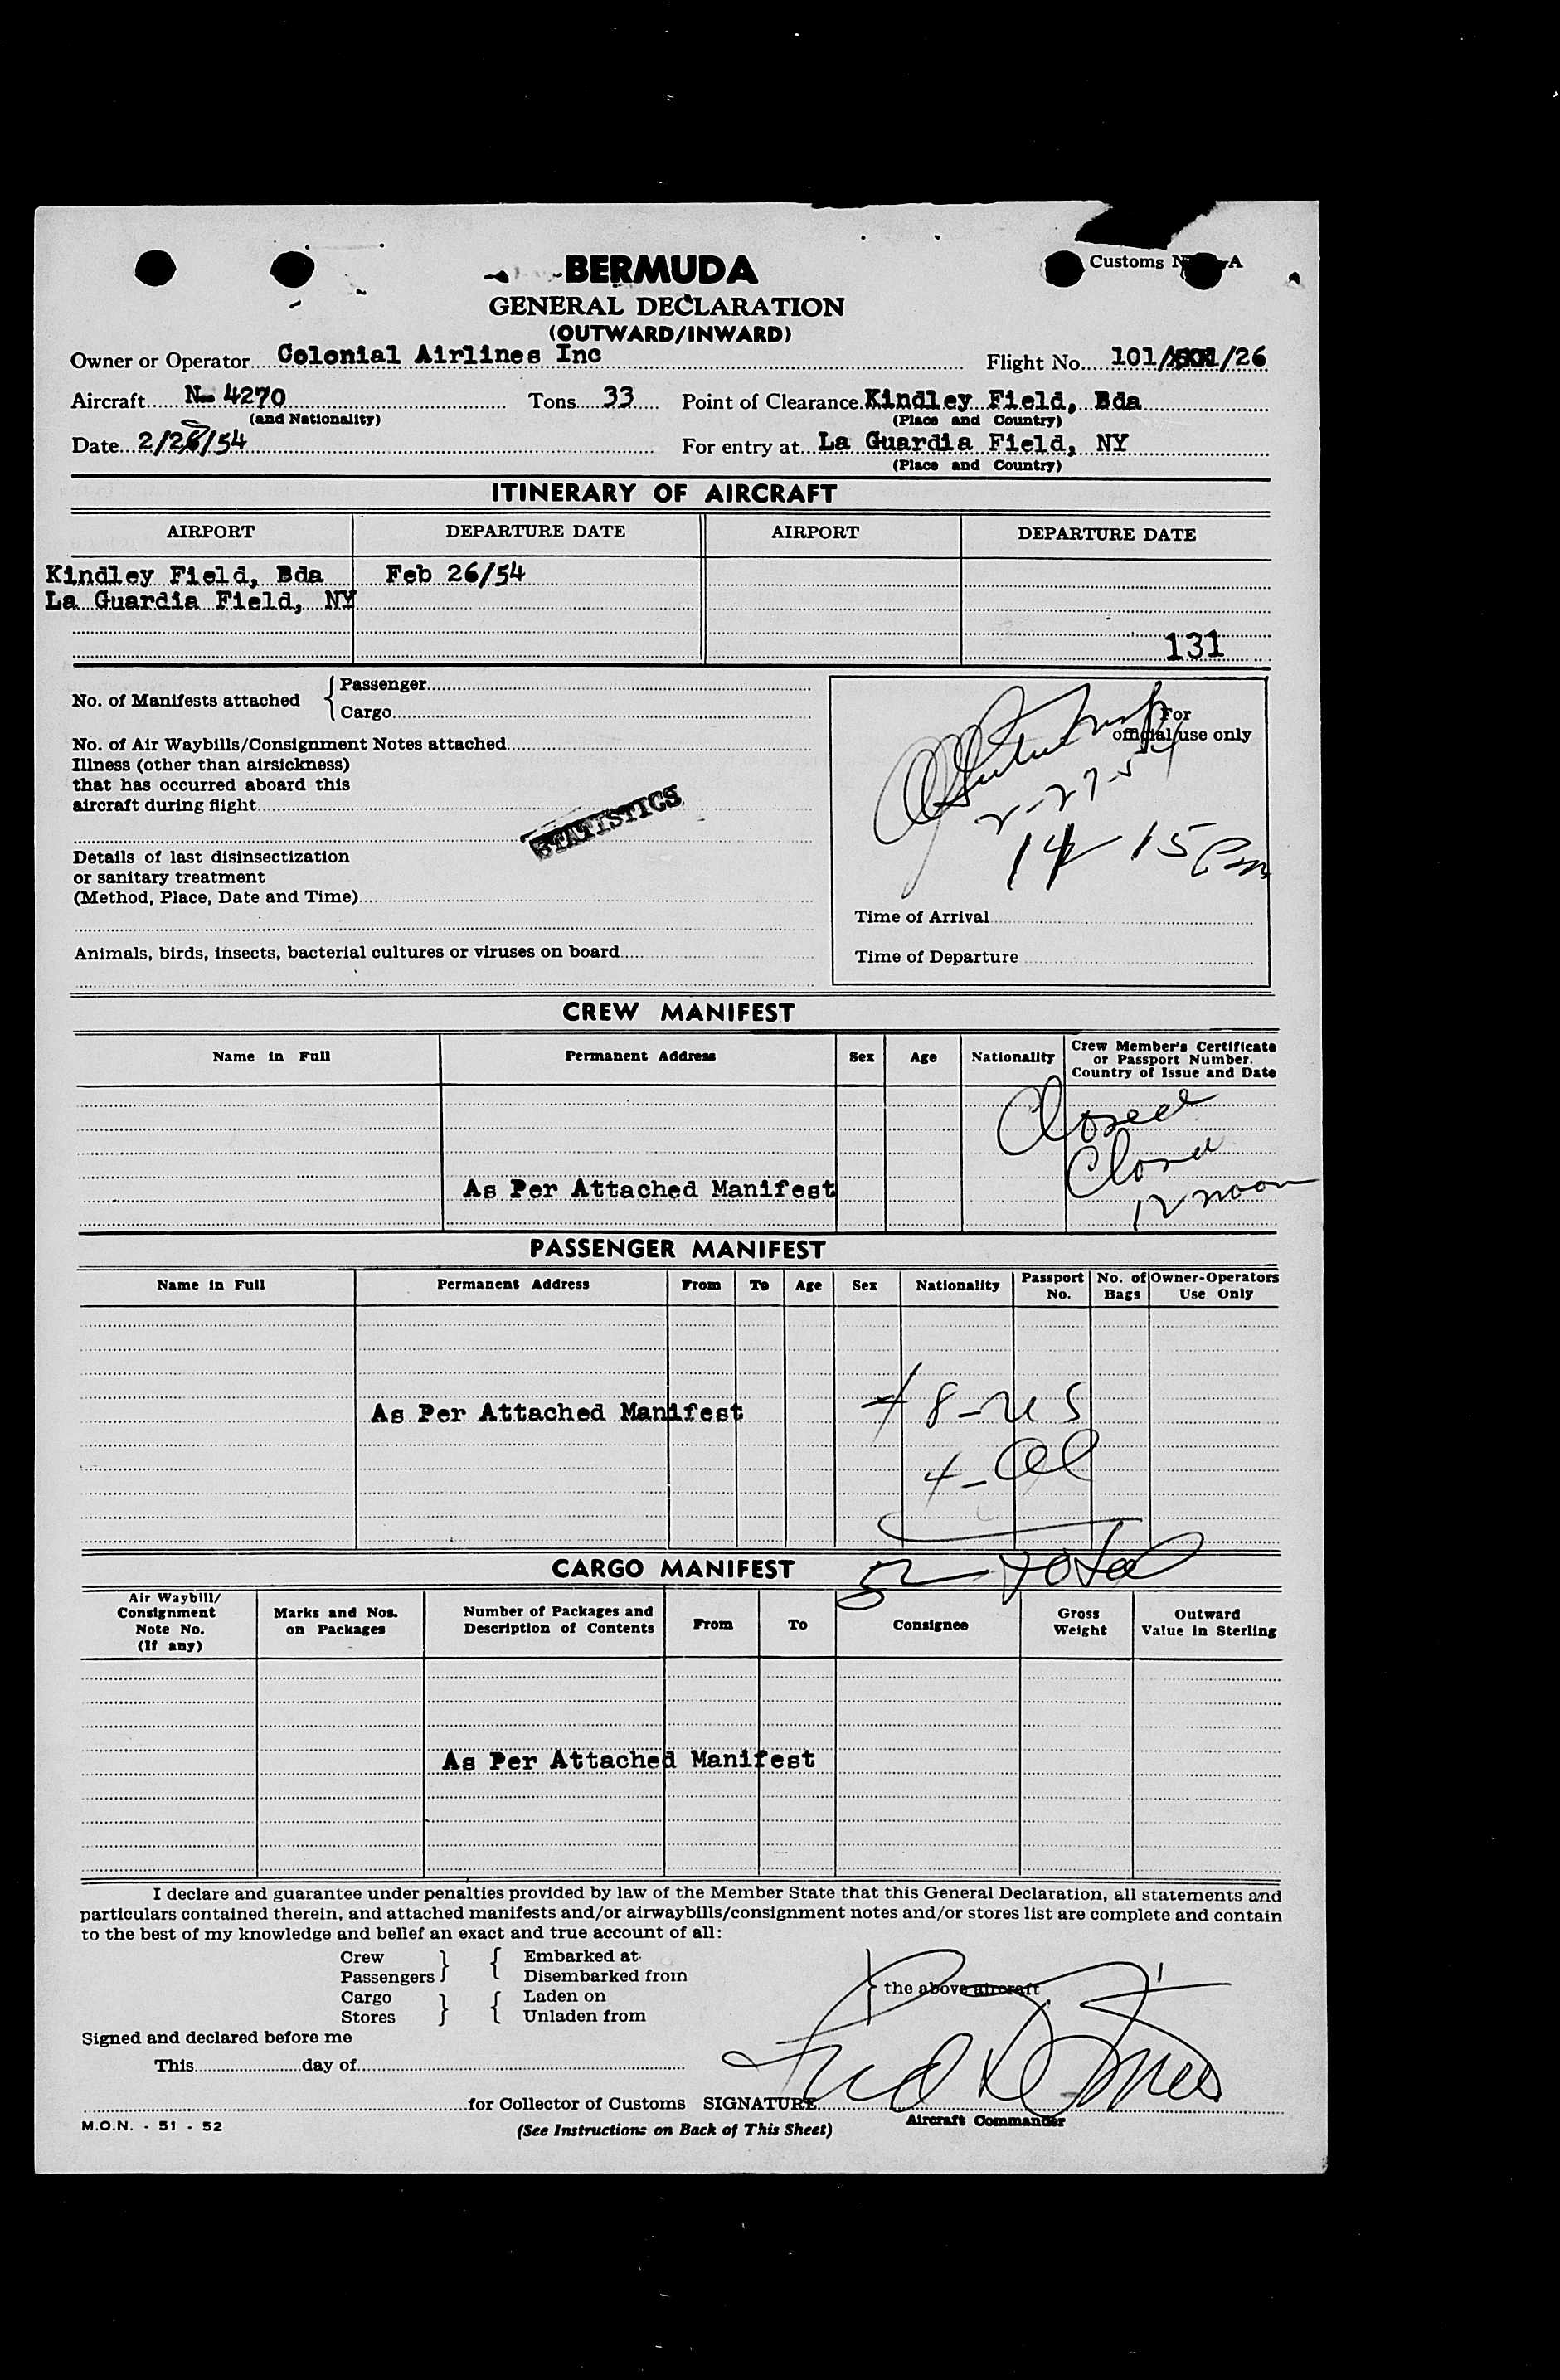 Customs N -A
BERMUDA
GENERAL DECLARATION
(OUTWARD/INWARD)
Owner or Operator Colonial Airlines Inc Flight No. 101/ /26
Aircraft N- 4270 Tons 33 Point of Clearance Kindley Field, Bda
(and Nationality) (Place and Country)
Date 2/26/54 For entry at La Guardia Field, NY
(Place and Country)
ITINERARY OF AIRCRAFT
AIRPORT DEPARTURE DATE AIRPORT DEPARTURE DATE
Kindley Field, Bda Feb 26/54
La Guardia Field, NY
131
No. of Manifests attached { Passenger
Cargo
For
official use only
No. of Air Waybills/Consignment Notes attached
Illness (other than airsickness)
that has occurred aboard this
aircraft during flight
2-27-54
STATISTICS
15 Pm
Details of last disinsectization
or sanitary treatment
(Method, Place, Date and Time)
Time of Arrival
Animals, birds, insects, bacterial cultures or viruses on board
Time of Departure
CREW MANIFEST
Name in Full Permanent Address Sex Age Nationality Crew Member's Certificate
or Passport Number.
Country of Issue and Date
Closed
Closed
As Per Attached Manifest
12 noon
PASSENGER MANIFEST
Name in Full Permanent Address From To Age Sex Nationality Passport No. No. of Bags Owner-Operators Use Only
As Per Attached Manifest
48-US
4-Al
52-total
CARGO MANIFEST
Air Waybill/
Consignment
Note No.
(If any) Marks and Nos.
on Packages Number of Packages and
Description of Contents From To Consignee Gross
Weight Outward
Value in Sterling
As Per Attached Manifest
I declare and guarantee under penalties provided by law of the Member State that this General Declaration, all statements and
particulars contained therein, and attached manifests and/or airwaybills/consignment notes and/or stores list are complete and contain
to the best of my knowledge and belief an exact and true account of all:
Crew } { Embarked at
Passengers Disembarked from } the above aircraft
Cargo } { Laden on
Stores Unladen from
Signed and declared before me
This day of
for Collector of Customs SIGNATURE
Aircraft Commander
M.O.N. - 51 - 52
(See Instructions on Back of This Sheet)